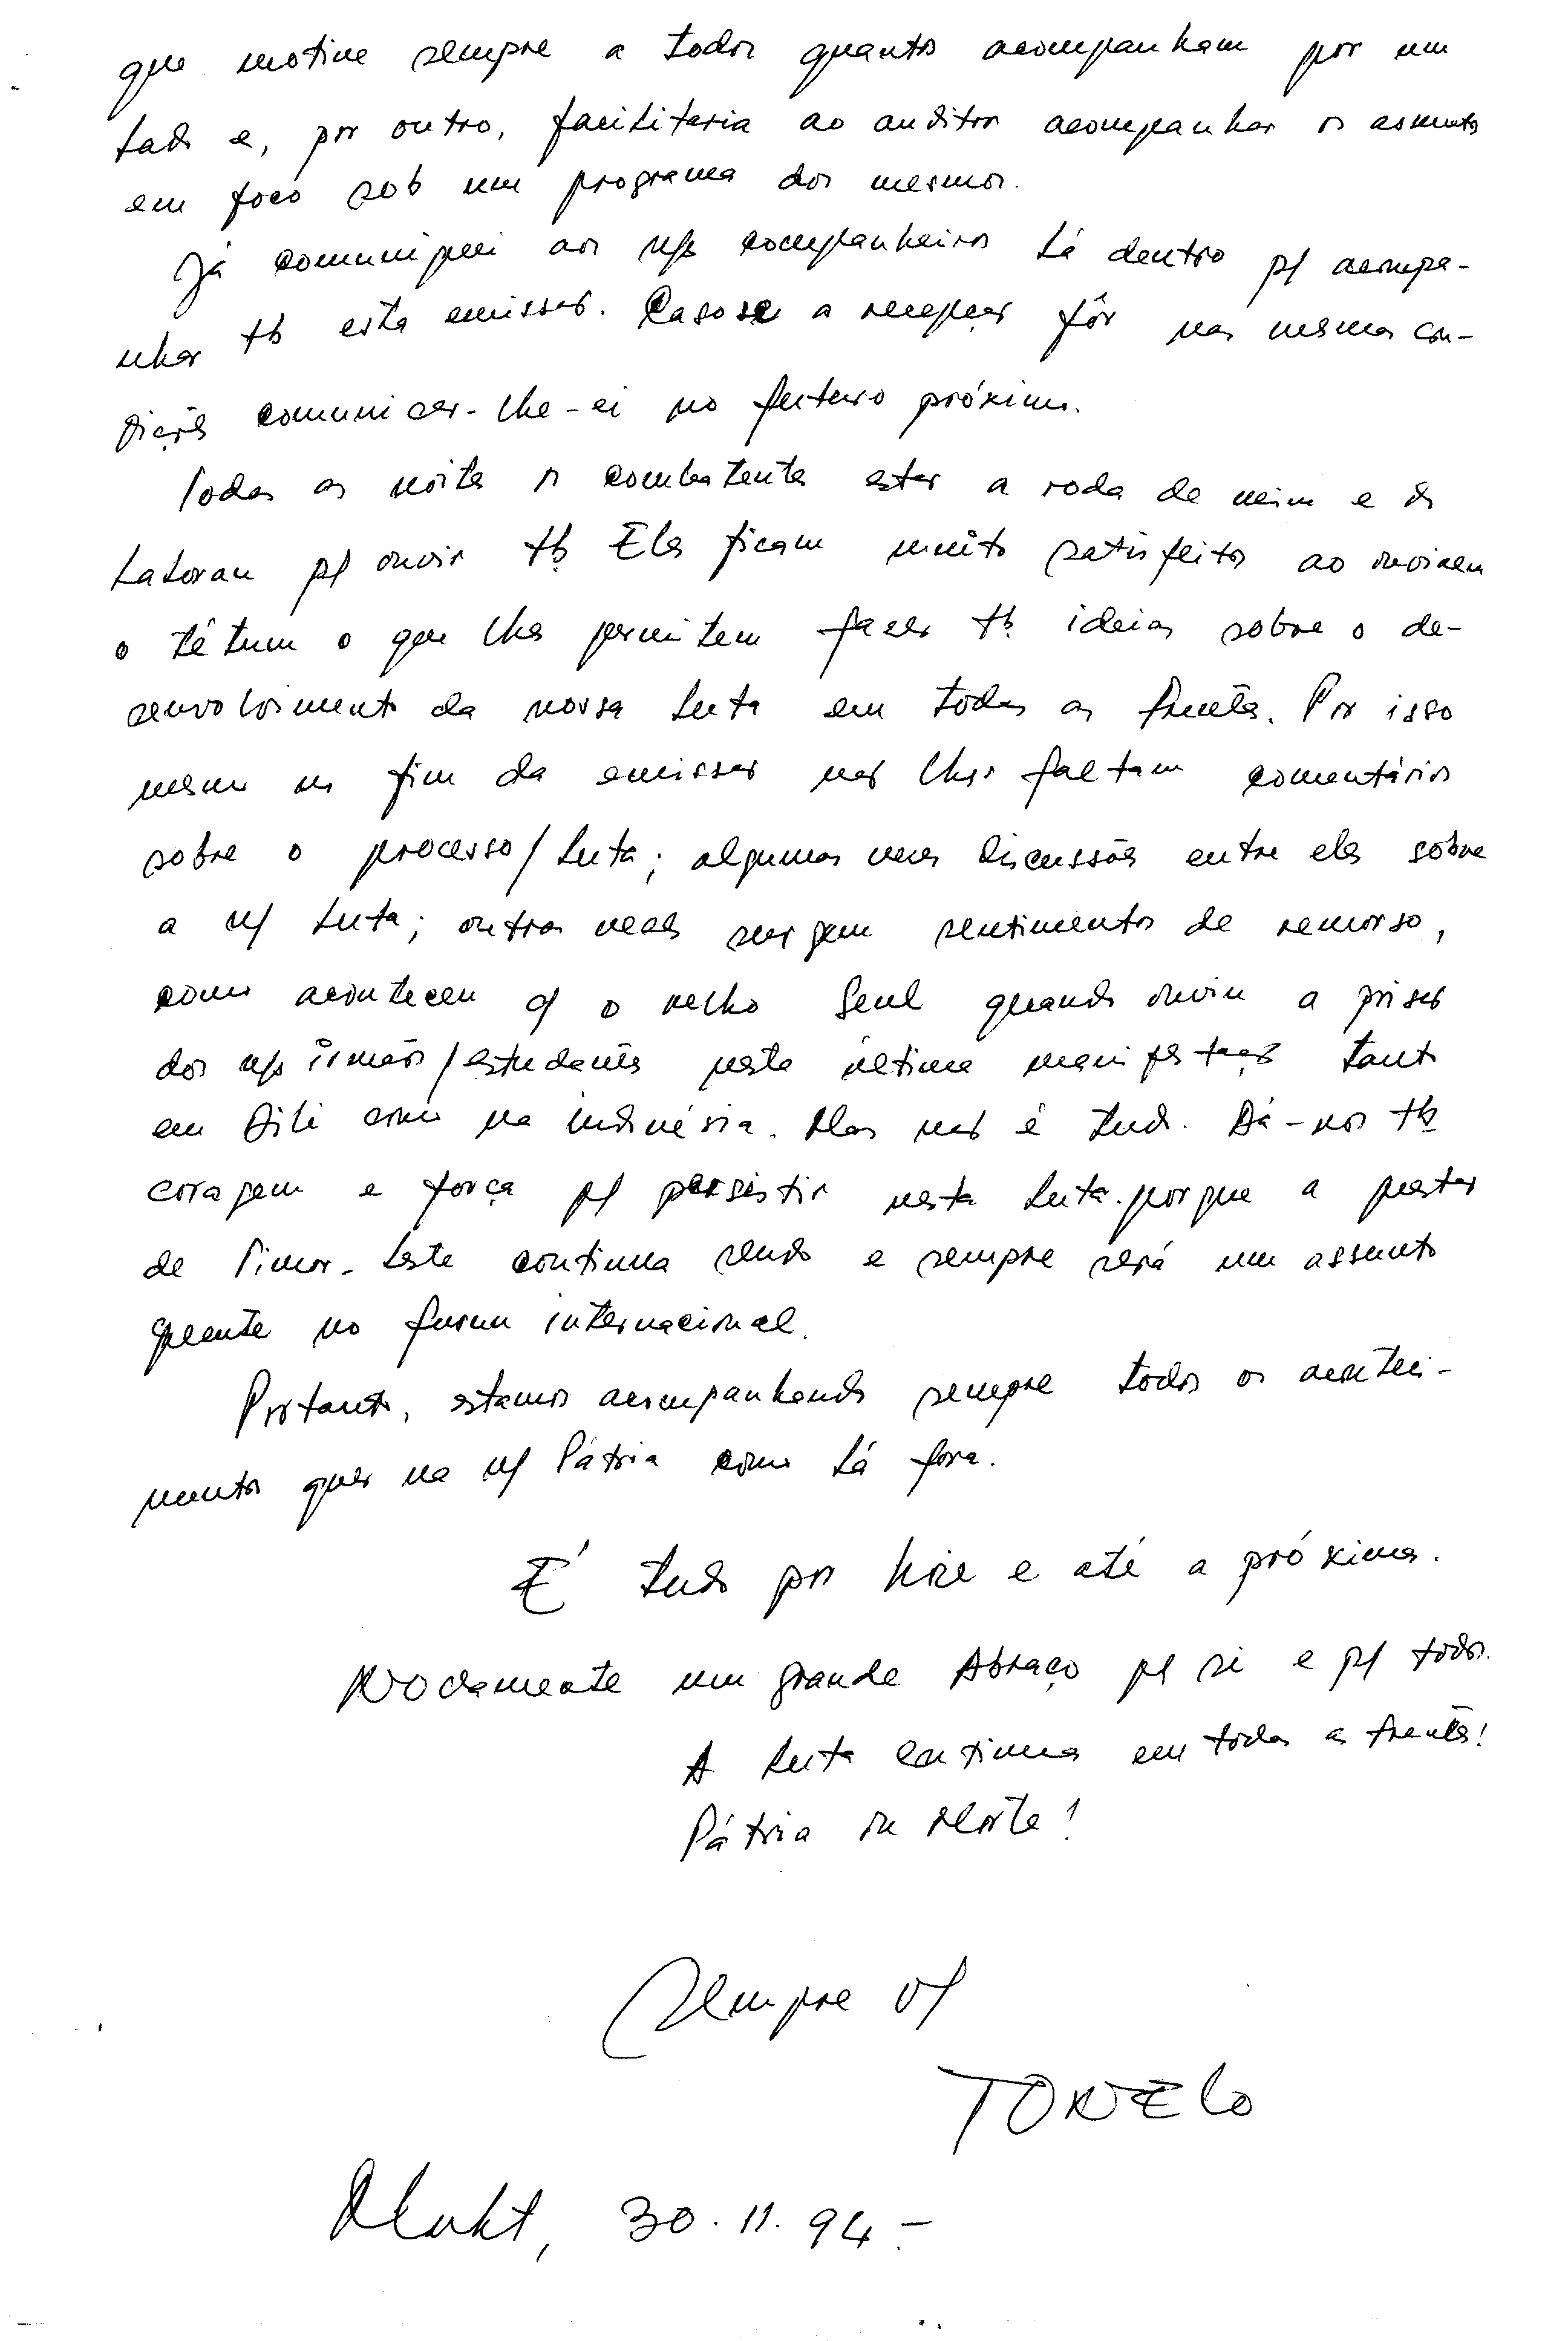 que motive sempre a todos quantos acompanham por um
lado e, por outro, facilitaria ao auditor acompanhar os assuntos
em foco sob um programa dos mesmos.
Já comuniquei aos n/s companheiros lá dentro p/ acompa-
nhar tb esta emissão. Caso se a recepção fôr nas mesmas con-
dições comunicar-lhe-ei no futuro próximo.
Todas as noites os combatentes estão a roda de mim e do
Latoran p/ ouvir tb. Eles ficam muito satisfeitos ao ouvirem
o tétum o que lhes permitem fazer tb. ideias sobre o de-
senvolvimento da nossa luta em todas as frentes. Por isso
mesmo no fim da emissão não lhes faltam comentários
sobre o processo/luta; algumas vezes discussões entre eles sobre
a n/ luta; outras vezes surgem sentimentos de remorso,
como aconteceu c/ o velho quando ouviu a prisão
dos n/s irmãos/estudantes nesta última manifestação tanto
em Dili como na indonésia. Mas não é tudo. Dá-nos tb
coragem e força p/ persistir nesta luta porque a questão
de Timor-Leste continua sendo e sempre será um assunto
quente no forum internacional.
Portanto, estamos acompanhando sempre todos os aconteci-
mentos quer na n/ Pátria como lá fora.
É tudo por hoje e até a próxima.
Novamente um grande Abraço p/ si e p/ todos.
A luta continua em todas as frentes!
Pátria ou Morte!
Sempre v/
TORELO
30.11.94.-